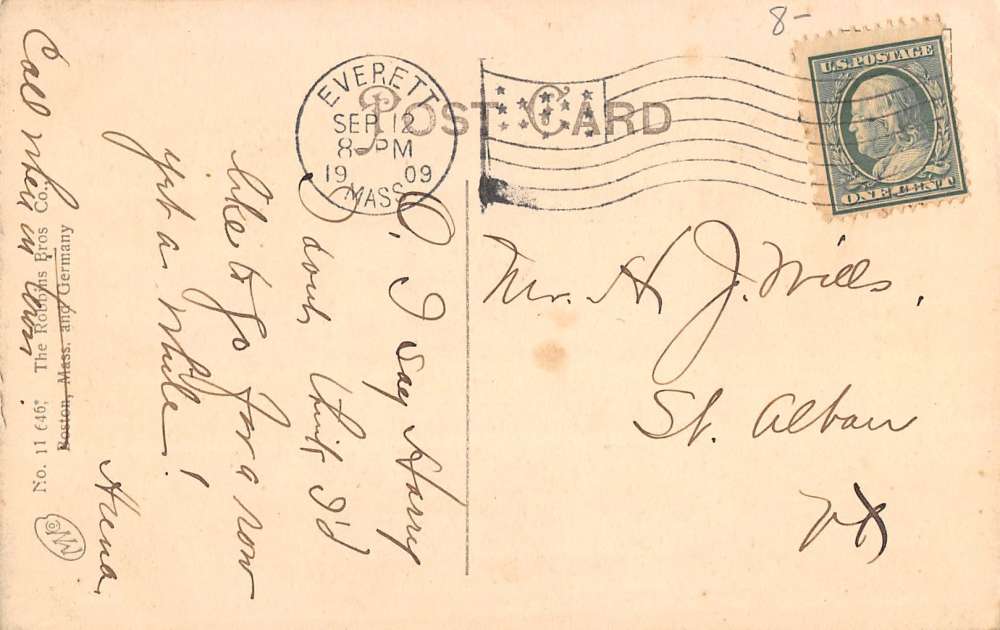 8-
U.S. POSTAGE
ONE CENT
EVERETT
SEP 12
8 PM
19 09
MASS.
POST CARD
O. I say Harry
I don't think I'd
like to go for a row
yet a while!
Anna.
Call when in town
No. 11646; The Robbins Bros Co.,
Boston, Mass. and Germany
Mr. H J. Wills.
St. Alban
Vt